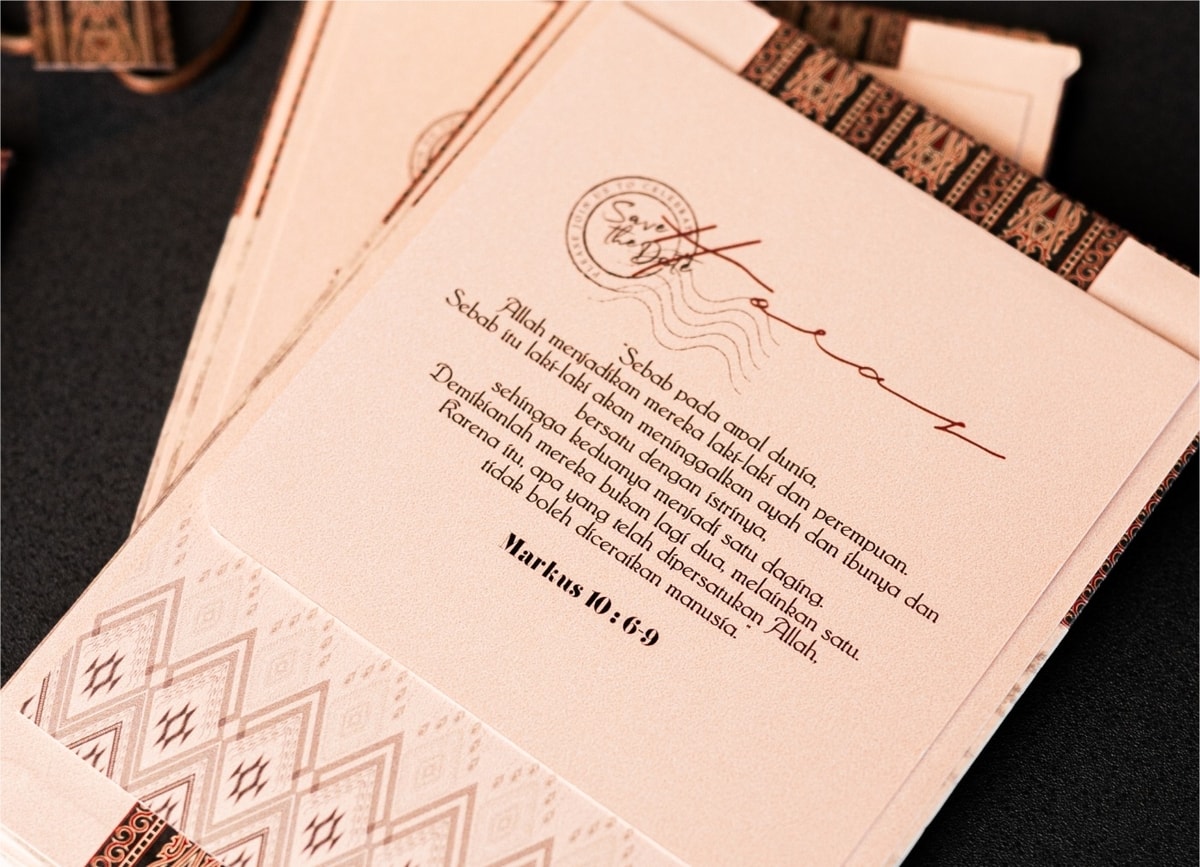 PLEASE JOIN US TO CELEBRA
Save
the Date
Horas
"Sebab pada awal dunia,
Allah menjadikan mereka laki-laki dan perempuan.
Sebab itu laki-laki akan meninggalkan ayah dan ibunya dan
bersatu dengan istrinya,
sehingga keduanya menjadi satu daging.
Demikianlah mereka bukan lagi dua, melainkan satu.
Karena itu, apa yang telah dipersatukan Allah,
tidak boleh diceraikan manusia."
Markus 10 : 6-9